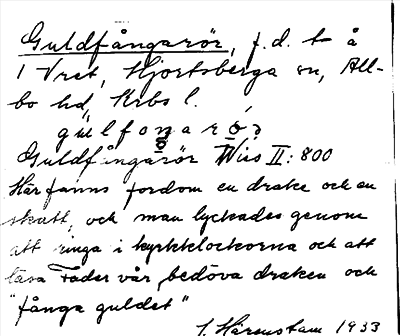 Guldfångarör, f.d. t å
1 Vret, Hjortsberga sn, All-
bo hd, Krbs l.
gu̇lfoŋarö́r
Guldfångarör Wiss II: 800
Här fanns fordom en drake och en
skatt, och man lyckades genom
att ringa i kyrkklockorna och att
läsa Fader vår, bedöva draken och
"fånga guldet"
S. Härenstam 1933